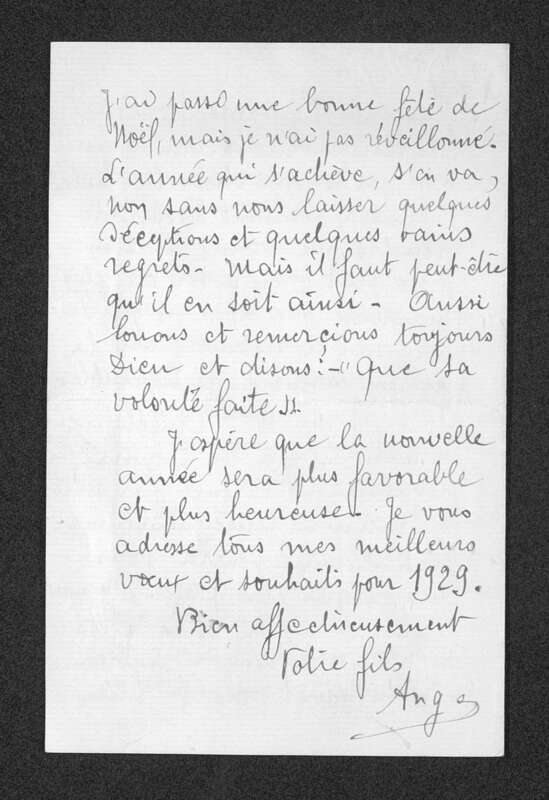 J'ai passé une bonne fête de
Noël, mais je n'ai pas réveillonné.
L'année qui s'achève, s'en va,
non sans nous laisser quelques
déceptions et quelques vains
regrets - Mais il faut peut-être
qu'il en soit ainsi - Aussi
louons et remercions toujours
Dieu et disons : - "Que sa
volonté faite".
J'espère que la nouvelle
année sera plus favorable
et plus heureuse - Je vous
adresse tous mes meilleurs
vœux et souhaits pour 1929.
Bien affectueusement
Votre fils
Ange